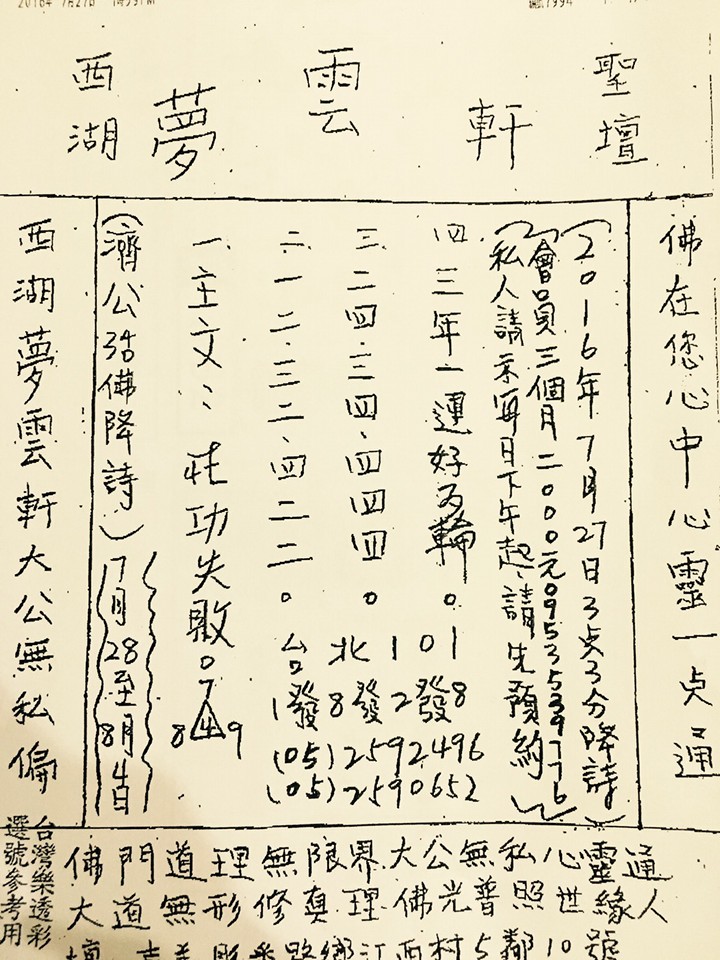 2016年 7月27日
聖壇
軒
雲
夢
西湖
佛在您心中心靈一点通
(2016年7月27日3点3分降詩)
(會員三個月二000元0953539776)
(私人請示每日下午起.請先預約)
四.三年一運好为輪。
三.二四.三四.四四四。
二.一二.三二.四二二。
一.主文:壯功失敗。
台北101
1發8發2發8
(05)2592496
(05)2590652
7
8 4 9
(濟公活佛降詩)
7月28至8月4日
西湖夢雲軒大公無私偏
佛門道理無限界大公無私心靈通
大道無形修真理佛光普照世緣人
路鄉江西村5鄰10號
台灣樂透彩
選號參考用